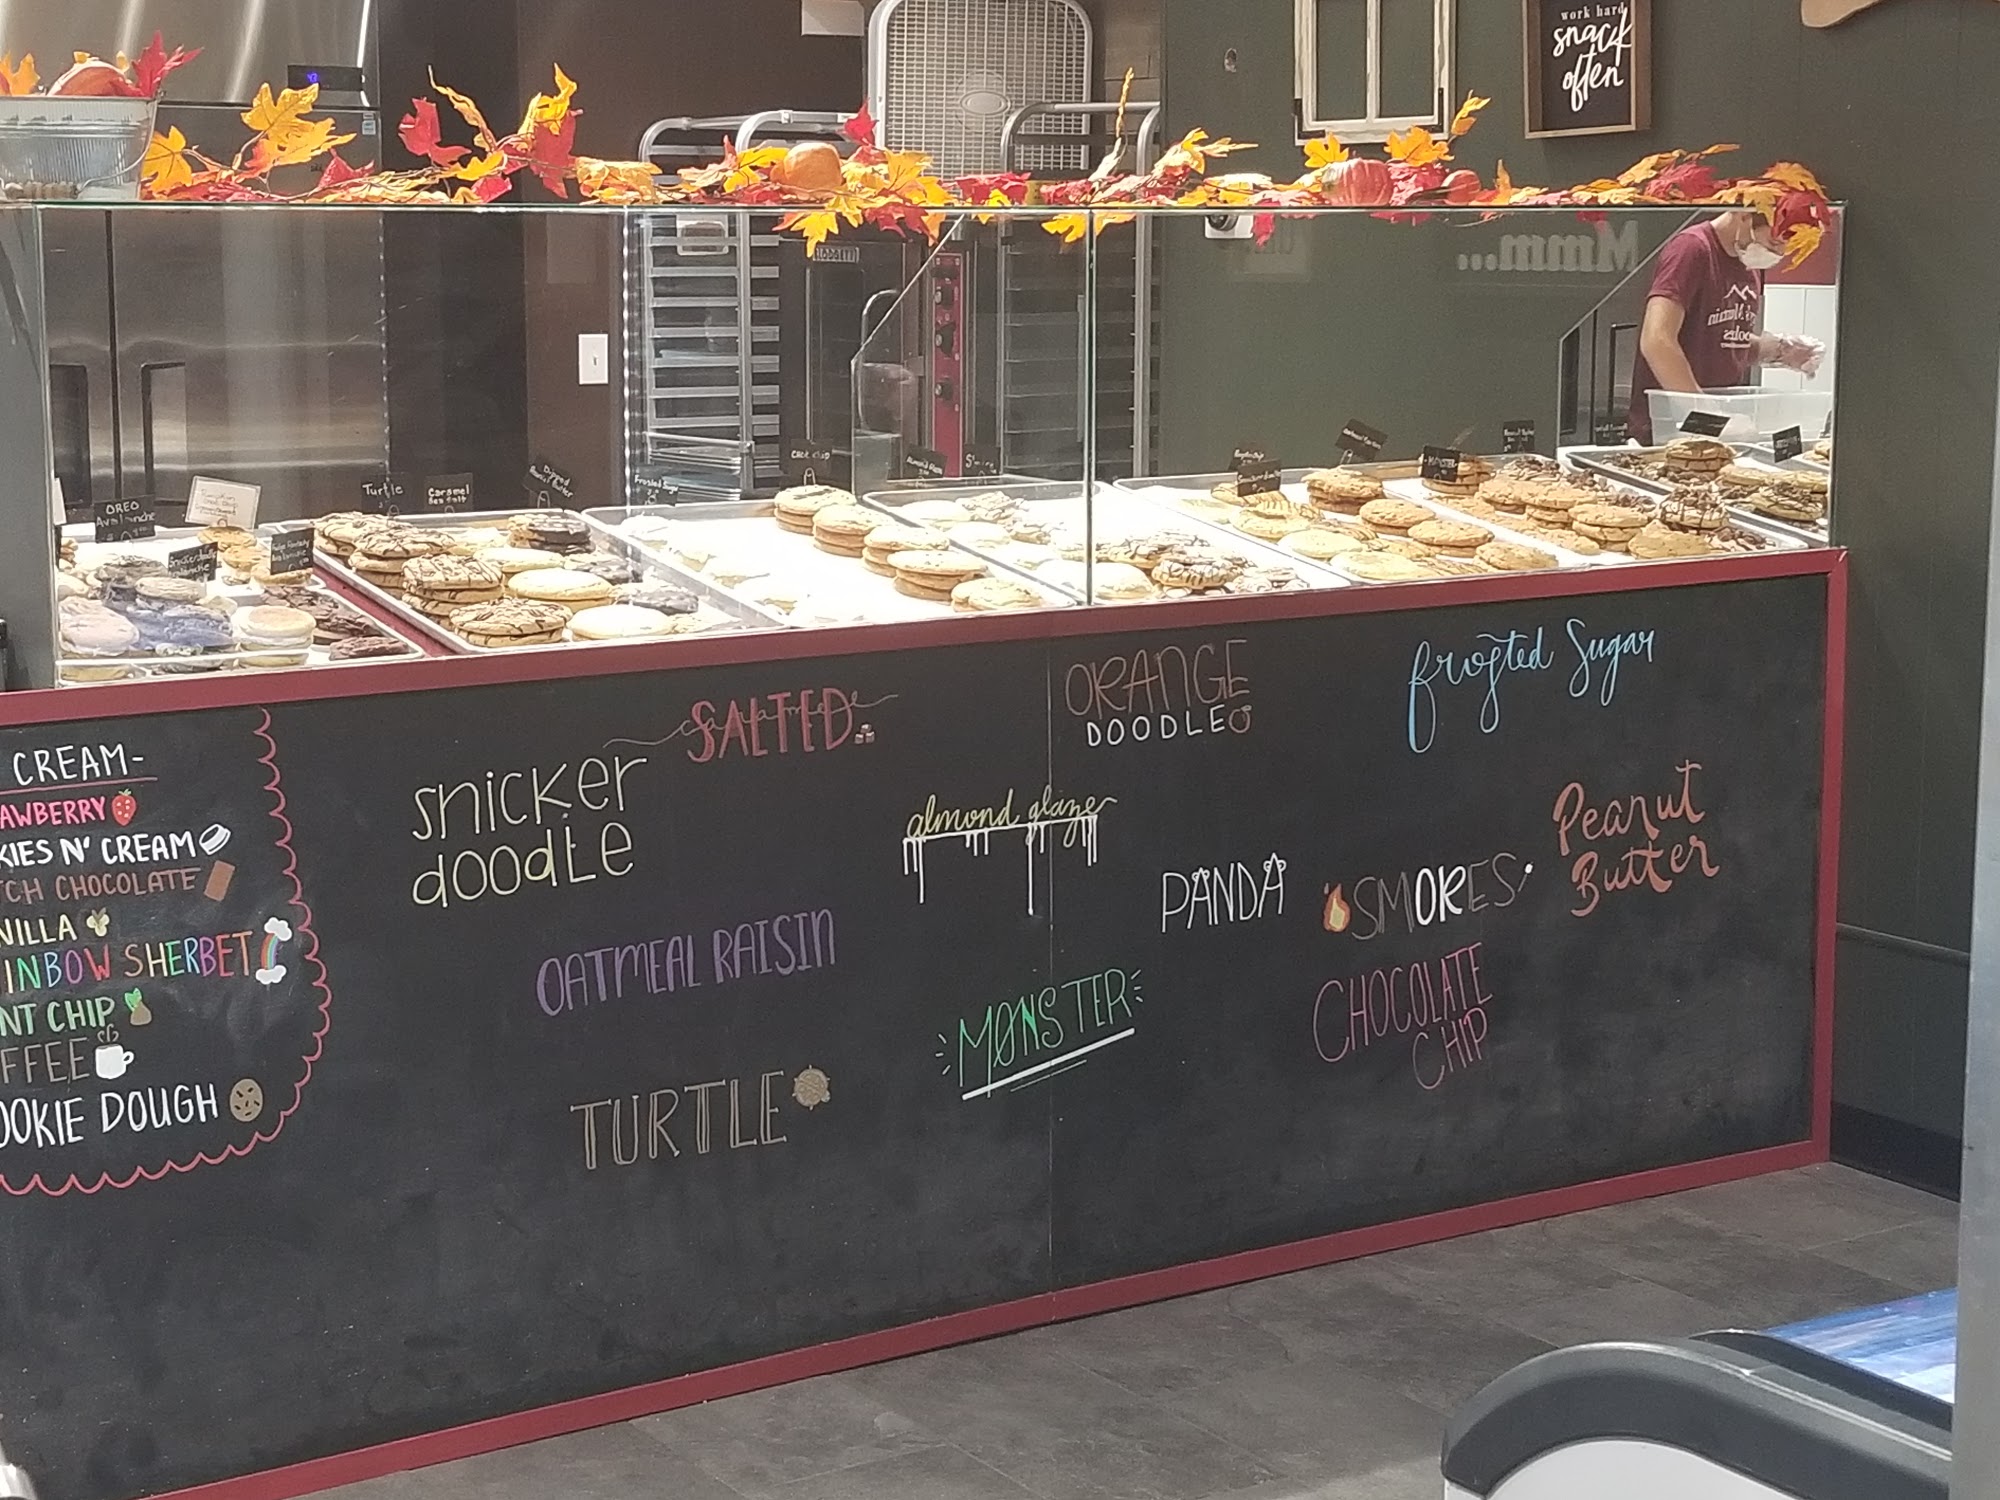 work hard
snack
often
Mmm...
OREO
Avalanche
Turtle
Caramel
Sea Salt
Frosted Sugar
Choc chip
MONSTER
CREAM-
AWBERRY
KIES N' CREAM
TCH CHOCOLATE
NILLA
INBOW SHERBET
NT CHIP
FFEE
OOKIE DOUGH
snicker
doodle
caramel
SALTED
ORANGE
DOODLE
frosted Sugar
almond glaze
Peanut
Butter
PANDA
SMORES
OATMEAL RAISIN
MONSTER
CHOCOLATE
CHIP
TURTLE